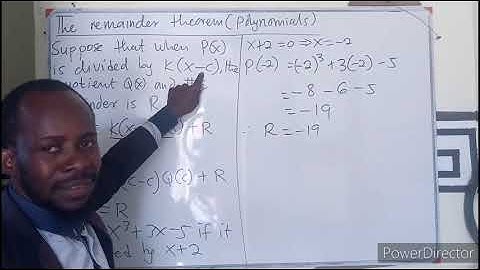 The remainder theorem(Polynomials)
Suppose that when P(x)
is divided by K(x-c), the
quotient Q(x) and the
R
K(x + R
-c) Q(c) + R
= R
x³+3x-5 if it
by x+2
x+2 = 0 ⇒ x = -2
P(-2) = (-2)³ + 3(-2) - 5
= -8 - 6 - 5
= -19
∴ R = -19
PowerDirector